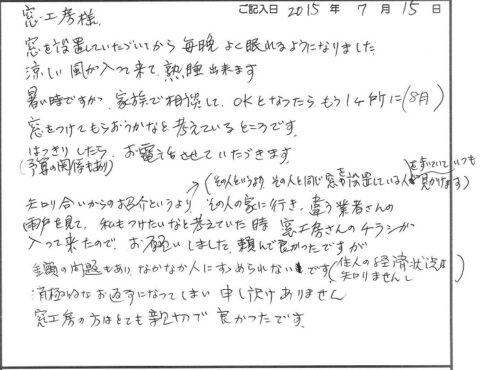 ご記入日 2015 年 7 月 15 日
窓工房様
窓を設置していただいてから 毎晩 よく眠れるようになりました
涼しい風が入って来て、熟睡出来ます
暑い時ですが、家族で相談して、OKとなったら、もう1ヶ所に(8月)
窓をつけてもらおうかなと考えているところです。
はっきりしたら、お電話させていただきます。
(予算の関係もあり)
(その人というより その人と同じ窓を設置している人を 見かけます)
知り合いからの紹介というより、その人の家に行き、違う業者さんの
雨戸を見て、私もつけたいなと考えていた時 窓工房さんのチラシが
入って来たので、お願いしました。頼んで良かったですが
金額の問題もあり、なかなか人にすすめられないです(他人の経済状況は知りませんし)
消極的なお返事になってしまい 申し訳ありません
窓工房の方はとても親切で 良かったです。